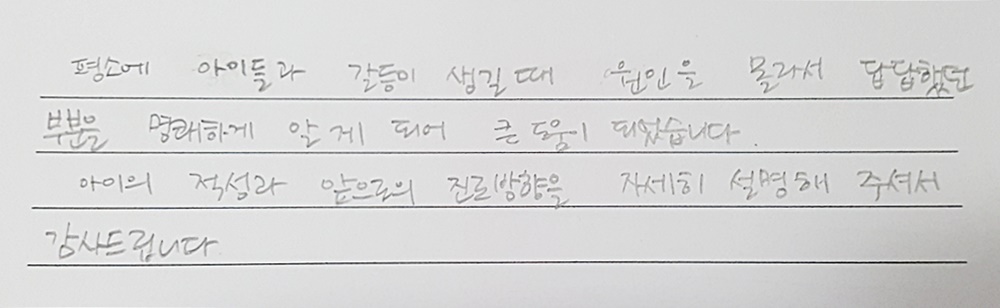 평소에 아이들과 갈등이 생길때 원인을 몰라서 답답했던
부분을 명쾌하게 알게 되어 큰 도움이 되었습니다.
아이의 적성과 앞으로의 진로방향을 자세히 설명해 주셔서
감사드립니다